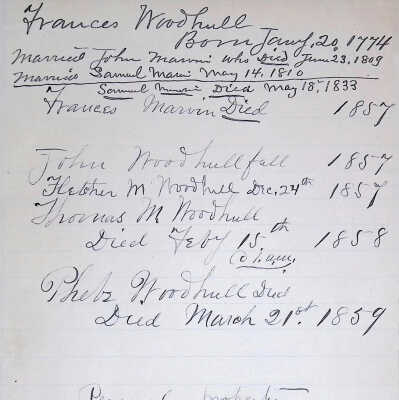 Frances Woodhull
Born Jany, 20, 1774
Married John Marvin who Died June 23, 1809
Married Samuel Marvin May 14, 1810
Samuel Marvin Died May 18, 1833
Frances Marvin Died 1857
John Woodhull fall 1857
Fletcher M. Woodhull Dec. 24th 1857
Thomas M Woodhull
Died Feby 15th 1858
Phebe Woodhull Died
Died March 21st. 1859